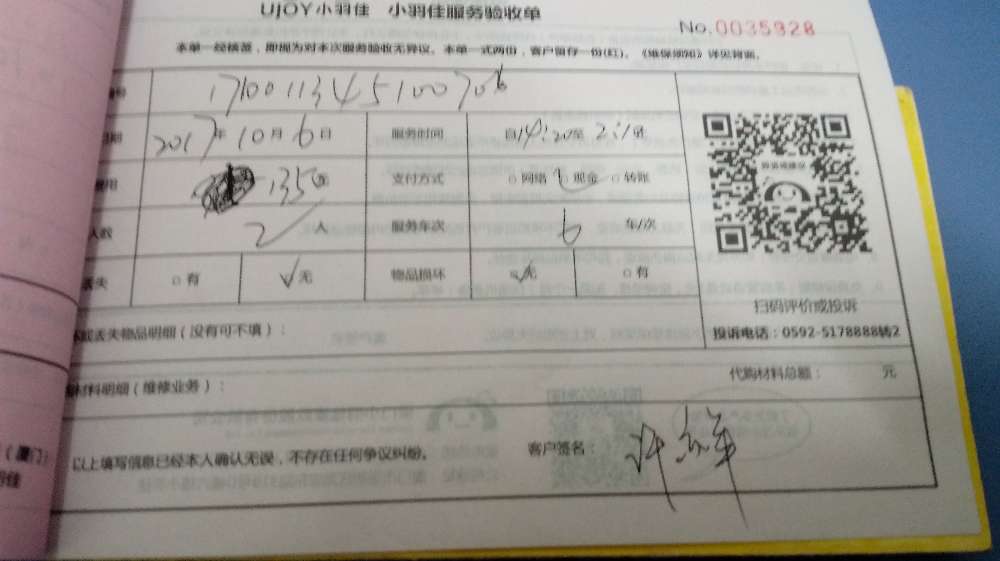 UJOY小羽佳 小羽佳服务验收单
No.0035928
本单一经核签，即视为对本次服务验收无异议。本单一式两份，客户留存一份(红)。《维保须知》详见背面。
号 1710011345100706
期 2017年10月6日 服务时间 自14:20至
费用 135元 支付方式 ○网络 ○现金 ○转账
人数 2人 服务车次 6 车/次
丢失 ○有 √无 物品损坏 √无 ○有
扫码评价或投诉
投诉电话：0592-5178888转2
或丢失物品明细（没有可不填）：
材料明细（维修业务）： 代购材料总额： 元
（厦门）
羽佳
以上填写信息已经本人确认无误，不存在任何争议纠纷。 客户签名：